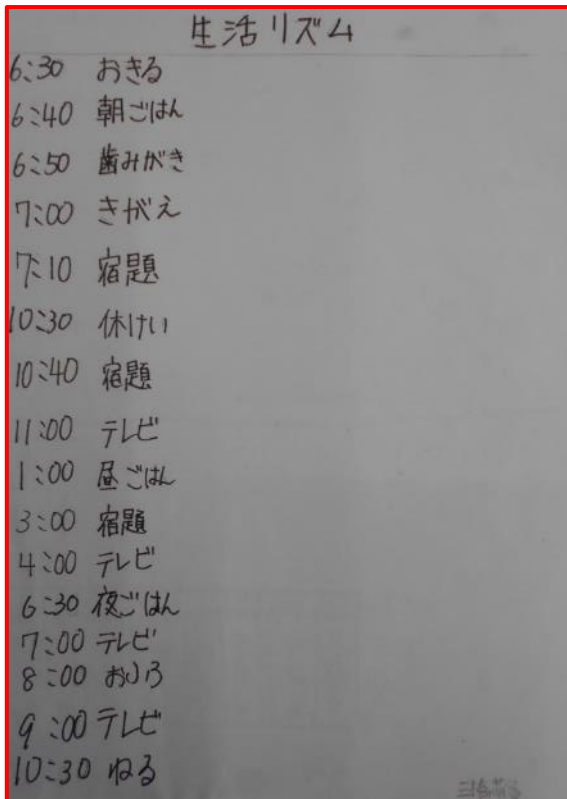 生活リズム
6:30 おきる
6:40 朝ごはん
6:50 歯みがき
7:00 きがえ
7:10 宿題
10:30 休けい
10:40 宿題
11:00 テレビ
1:00 昼ごはん
3:00 宿題
4:00 テレビ
6:30 夜ごはん
7:00 テレビ
8:00 おふろ
9:00 テレビ
10:30 ねる